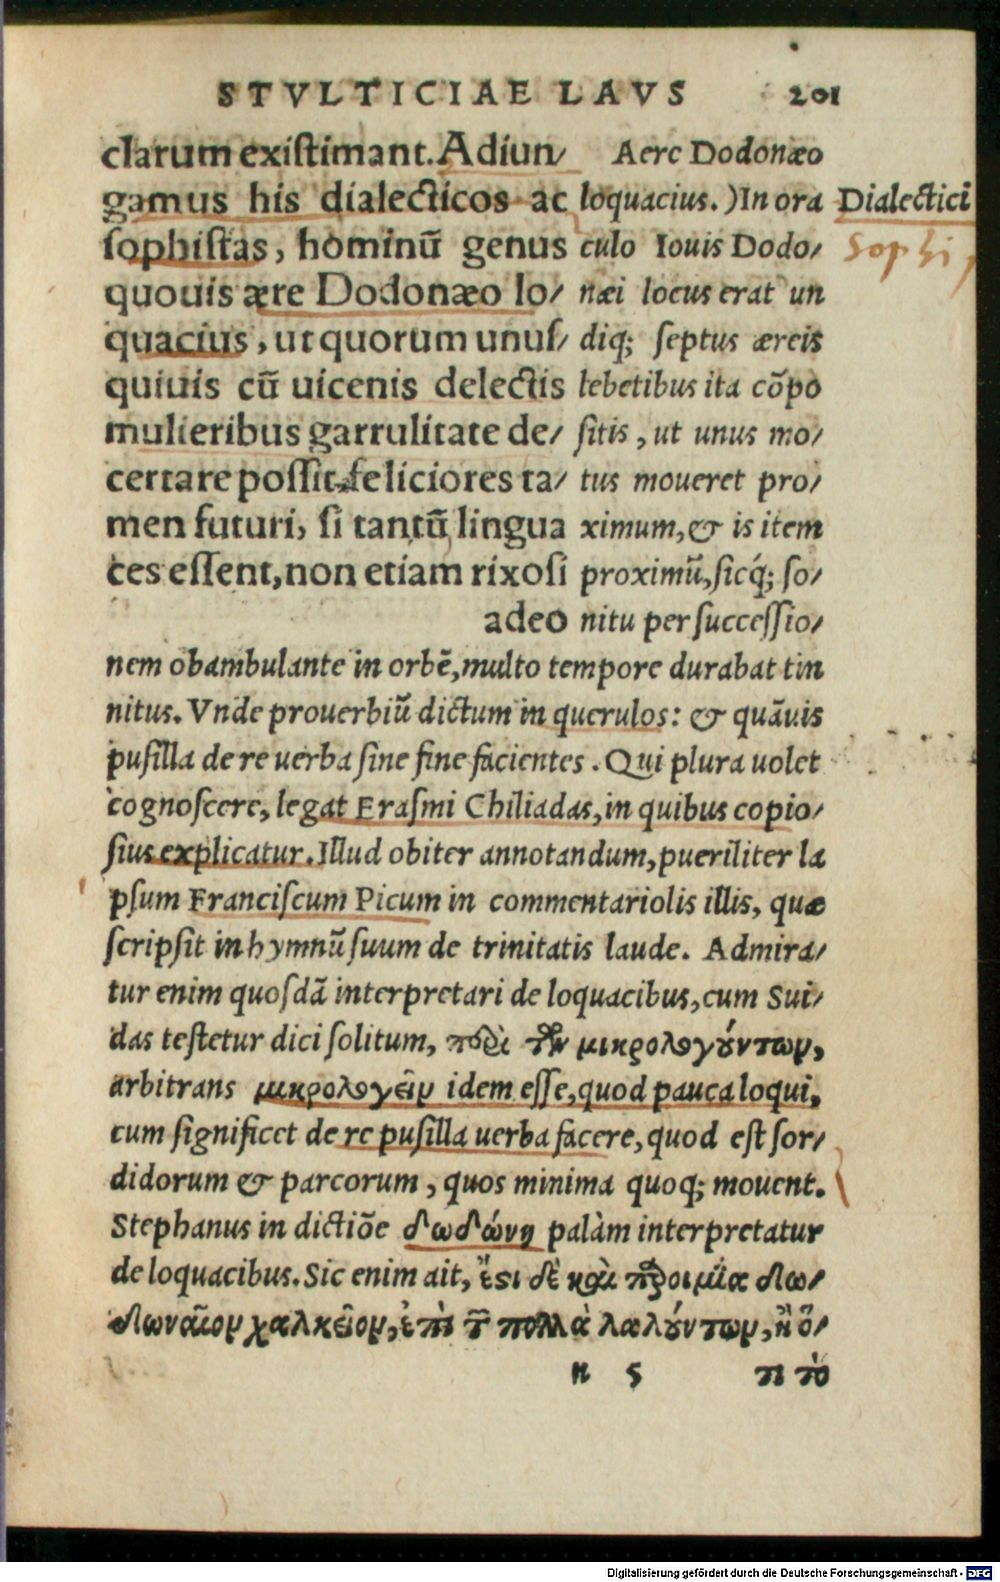 STVLTICIAE LAVS 201
clarum existimant. Adiun/
gamus his dialecticos ac
sophistas, hominū genus
quouis ære Dodonæo lo/
quacius, ut quorum unus/
quiuis cū uicenis delectis
mulieribus garrulitate de/
certare possit, feliciores ta/
men futuri, si tantū lingua
ces essent, non etiam rixosi
adeo
Aere Dodonæo
loquacius.) In ora
culo Iouis Dodo/
næi locus erat un
diq; septus æreis
lebetibus ita cōpo
sitis, ut unus mo/
tus moueret pro/
ximum, & is item
proximū, sicq́; so/
nitu per successio/
Dialectici
Sophi
nem obambulante in orbē, multo tempore durabat tin
nitus. Vnde prouerbiū dictum in querulos: & quāuis
pusilla de re uerba sine fine facientes. Qui plura uolet
cognoscere, legat Erasmi Chiliadas, in quibus copio/
sius explicatur. Illud obiter annotandum, pueriliter la
psum Franciscum Picum in commentariolis illis, quæ
scripsit in hymnū suum de trinitatis laude. Admira/
tur enim quosdā interpretari de loquacibus, cum Sui/
das testetur dici solitum, περὶ τῶν μικρολογούντων,
arbitrans μικρολογεῖν idem esse, quod pauca loqui,
cum significet de re pusilla uerba facere, quod est sor/
didorum & parcorum, quos minima quoq; mouent.
Stephanus in dictiōe δωδώνη palàm interpretatur
de loquacibus. Sic enim ait, ἔστι δὲ καὶ παροιμία δω/
δωναῖον χαλκεῖον, ἐπὶ τῶν πολλὰ λαλούντων, ἢ ὅ/
n 5 πὸ